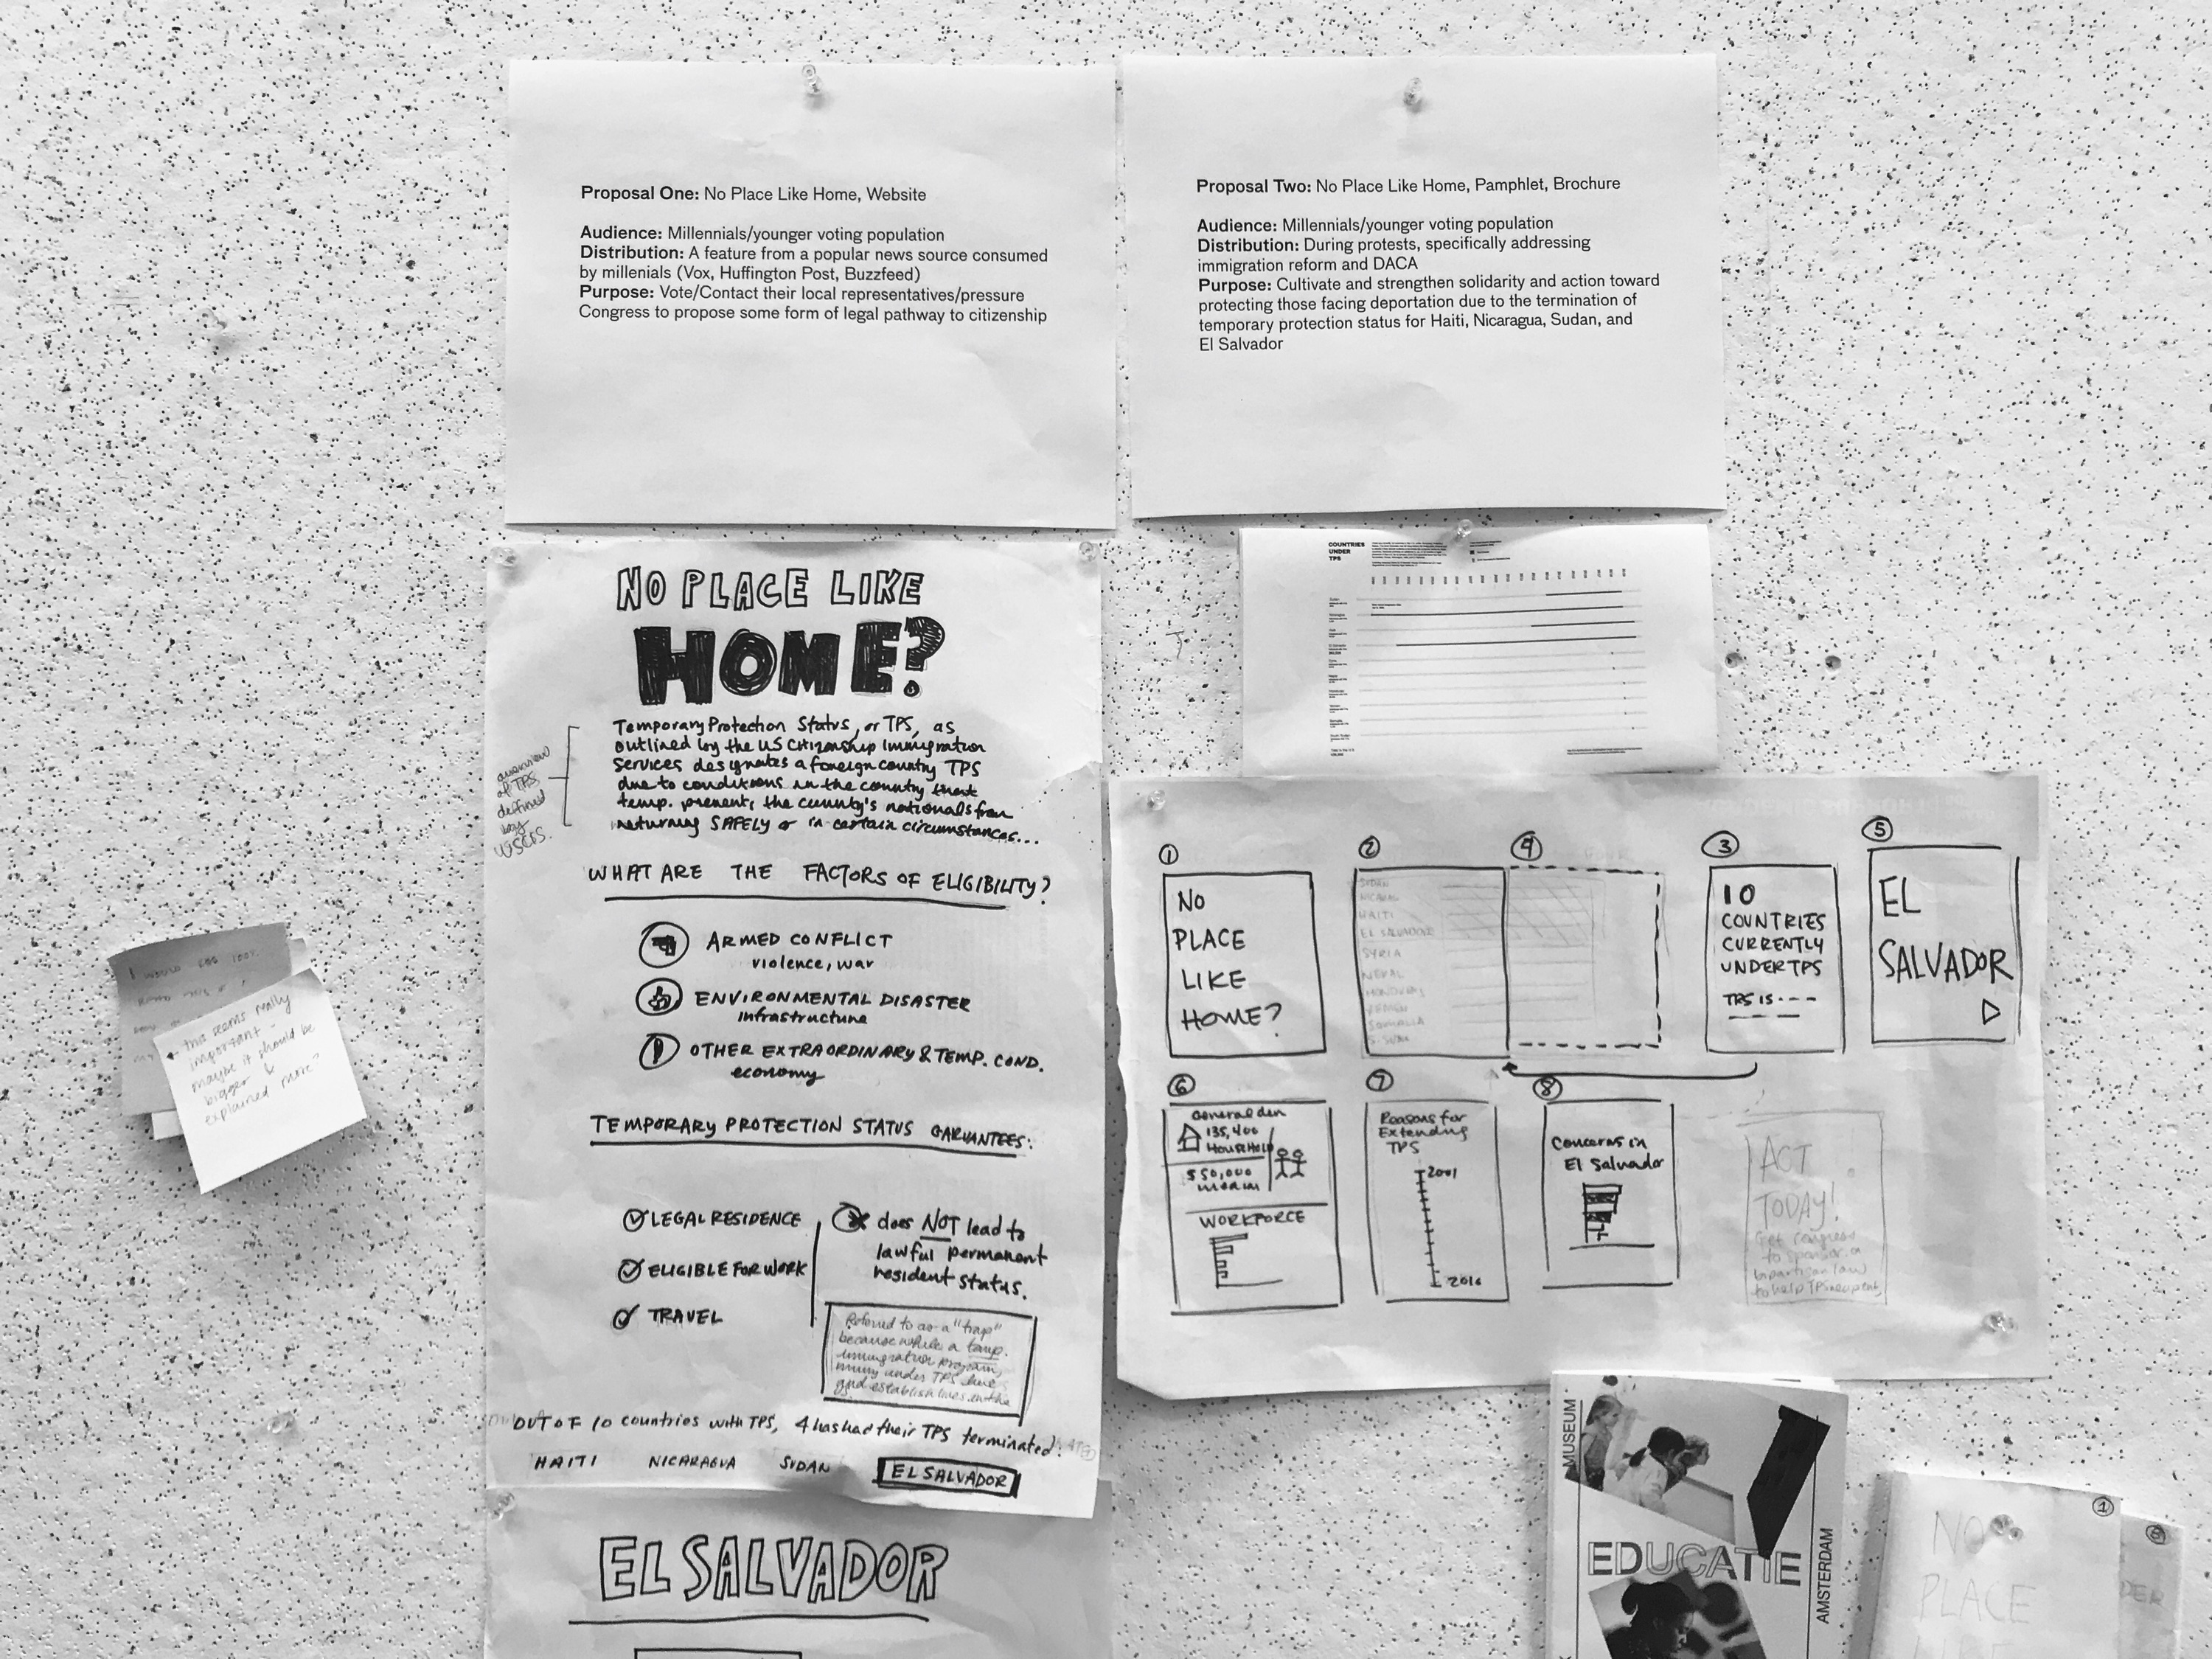 Proposal One: No Place Like Home, Website
Audience: Millennials/younger voting population
Distribution: A feature from a popular news source consumed
by millenials (Vox, Huffington Post, Buzzfeed)
Purpose: Vote/Contact their local representatives/pressure
Congress to propose some form of legal pathway to citizenship
Proposal Two: No Place Like Home, Pamphlet, Brochure
Audience: Millennials/younger voting population
Distribution: During protests, specifically addressing
immigration reform and DACA
Purpose: Cultivate and strengthen solidarity and action toward
protecting those facing deportation due to the termination of
temporary protection status for Haiti, Nicaragua, Sudan, and
El Salvador
NO PLACE LIKE
HOME?
Temporary Protection Status, or TPS, as
outlined by the US Citizenship Immigration
Services designates a foreign country TPS
due to conditions in the country that
temp. prevents the country's nationals from
returning SAFELY or in certain circumstances...
overview
of TPS
defined
by
USCIS.
WHAT ARE THE FACTORS OF ELIGIBILITY?
ARMED CONFLICT
violence, war
ENVIRONMENTAL DISASTER
infrastructure
OTHER EXTRAORDINARY & TEMP. COND.
economy
TEMPORARY PROTECTION STATUS GARUANTEES:
LEGAL RESIDENCE
ELIGIBLE FOR WORK
TRAVEL
does NOT lead to
lawful permanent
resident status.
Referred to as a "trap"
because while a temp.
immigration program,
many under TPS have
and establish lives in the
OUT OF 10 countries with TPS, 4 has had their TPS terminated!
HAITI NICARAGUA SUDAN EL SALVADOR
EL SALVADOR
COUNTRIES
UNDER
TPS
1
NO
PLACE
LIKE
HOME?
2
SUDAN
HAITI
EL SALVADOR
SYRIA
NEPAL
HONDURAS
YEMEN
SOMALIA
S. SUDAN
4
3
10
COUNTRIES
CURRENTLY
UNDER TPS
TPS IS ---
5
EL
SALVADOR
6
General
135,400
HOUSEHOLD
$50,000
WORKFORCE
7
Reasons for
Extending
TPS
2001
2016
8
Concerns in
El Salvador
ACT
TODAY!
Get congress
to sponsor a
bipartisan law
to help TPS recipients
this seems really
important -
maybe it should be
bigger &
explained more?
MUSEUM
EDUCATIE
AMSTERDAM
1
NO
PLACE
LIKE